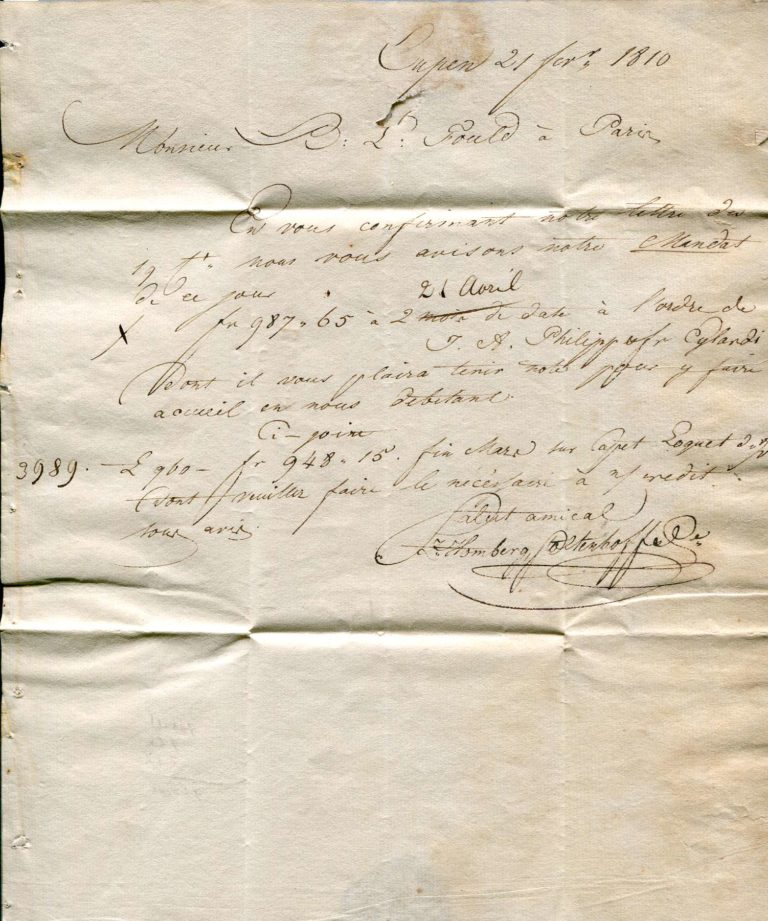 Eupen 21 fevr. 1810
Monsieur B: Ld: Fould à Paris
En vous confirmant notre lettre du
19 ct. nous vous avisons notre Mandat
de ce jour
21 Avril
X fr 987 " 65 à 2 mois de date à l'ordre de
J. A. Philipp
Dont il vous plaira tenir note pour y faire
accueil en nous debitant.
Ci-joint
3989. - L 960 - fr 948 " 15. fin Mars sur Capet Loquet
dont veuillez faire le nécessaire à n/ credit
sous avis.
Salut amical